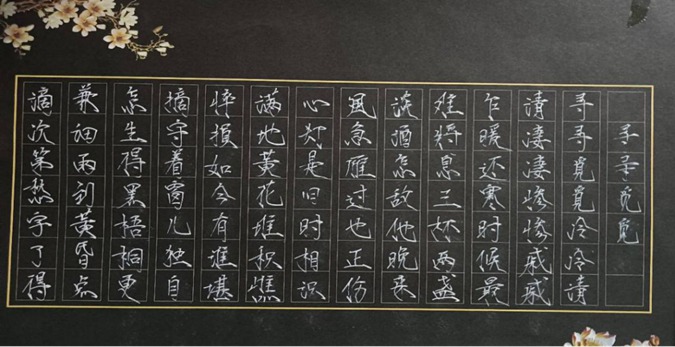 寻寻觅觅
寻寻觅觅冷冷清
清凄凄惨惨戚戚
乍暖还寒时候最
难将息三杯两盏
淡酒怎敌他晚来
风急雁过也正伤
心却是旧时相识
满地黄花堆积憔
悴损如今有谁堪
摘守着窗儿独自
怎生得黑梧桐更
兼细雨到黄昏点
滴次第愁字了得